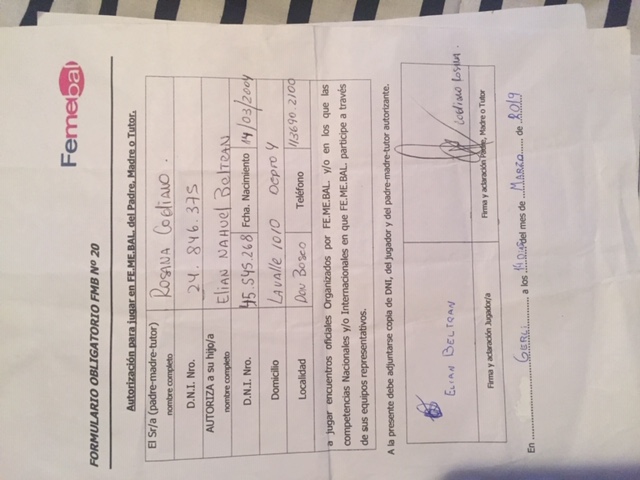 Femebal
FORMULARIO OBLIGATORIO FMB Nº 20
Autorización para jugar en FE.ME.BAL del Padre, Madre o Tutor.
El Sr/a (padre-madre-tutor)
nombre completo
ROSANA
D.N.I. Nro. 24.846.375
AUTORIZA a su hijo/a
nombre completo
ELIAN NAHUEL BELTRAN
D.N.I. Nro. 45.545.268 Fcha. Nacimiento 14/03/2004
Domicilio LAVALLE 1010 DEPTO 4
Localidad DON BOSCO Teléfono 113690.2100
a jugar encuentros oficiales Organizados por FE.ME.BAL y/o en los que las
competencias Nacionales y/o Internacionales en que FE.ME.BAL participe a través
de sus equipos representativos.
A la presente debe adjuntarse copia de DNI, del jugador y del padre-madre-tutor autorizante.
ELIAN BELTRAN
Firma y aclaración Jugador/a
Firma y aclaración Padre, Madre o Tutor
En GERLI a los del mes de MARZO de 2019